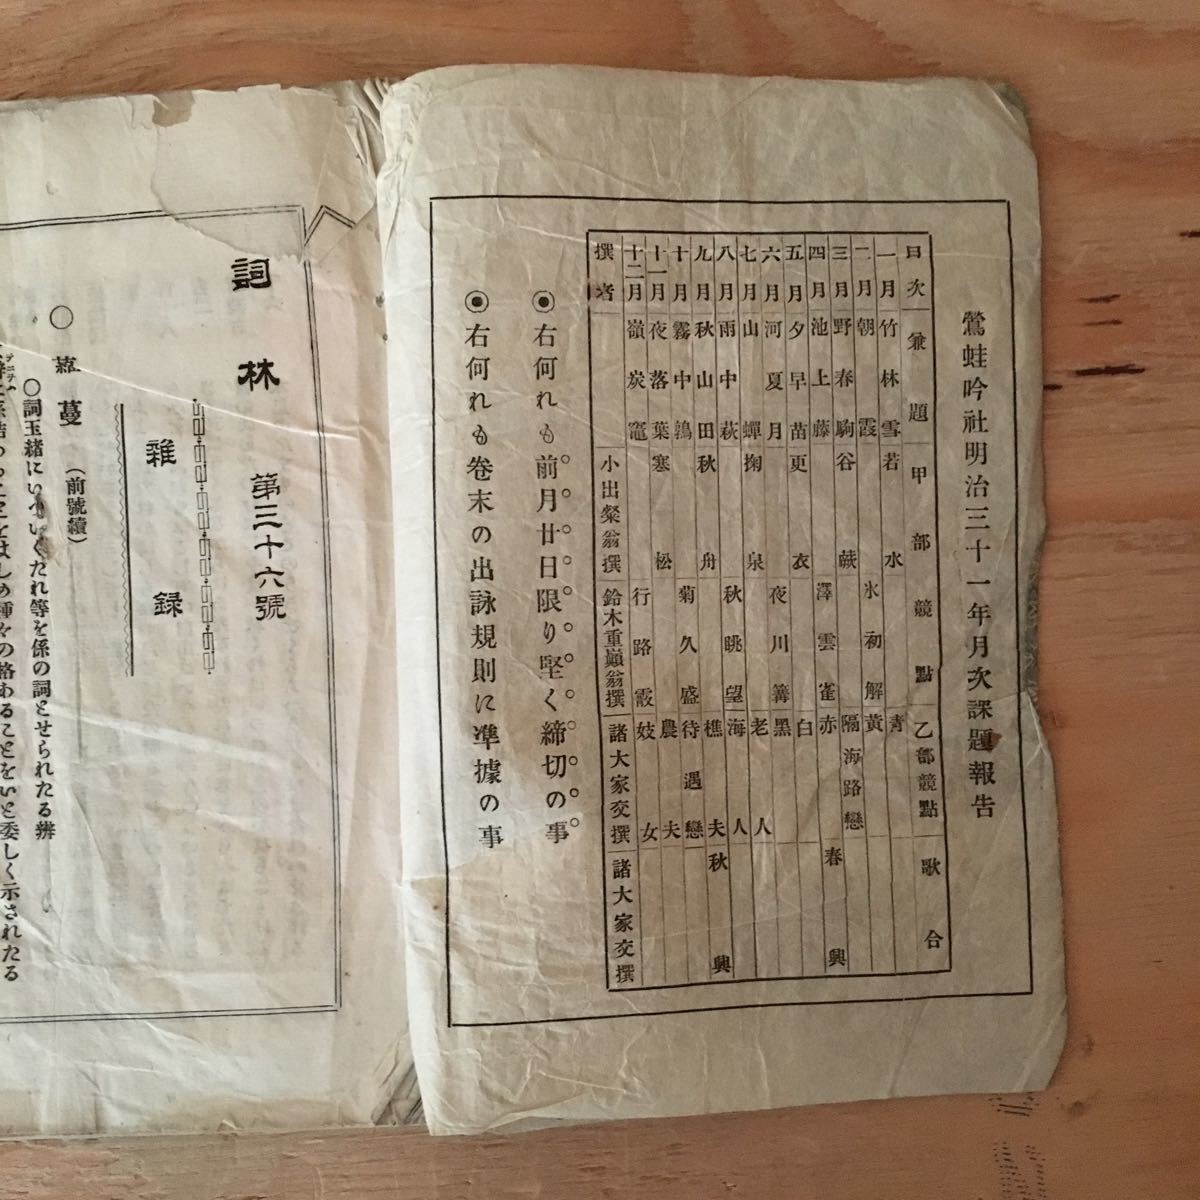 鶯蛙吟社明治三十一年月次課題報告
月次 兼題 甲部競點 乙部競點 歌合
一月 竹林雪 若水 青
二月 朝霞 氷初解 黃
三月 野春駒 谷蕨 隔海路戀
四月 池上藤 澤雲雀 赤 春興
五月 夕早苗 更衣 白
六月 河夏月 夜川篝 黑
七月 山蟬 掬泉 老人
八月 雨中萩 秋眺望 海人
九月 秋山田 秋舟 樵夫 秋興
十月 霧中鶉 菊久盛 待遇戀
十一月 夜落葉 寒松 農夫
十二月 嶺炭竈 行路霰 妓女
撰者 小出粲翁撰 鈴木重嶺翁撰 諸大家交撰 諸大家交撰
◉右何れも前月廿日限り堅く締切の事
◉右何れも卷末の出詠規則に準據の事
詞林 第三十六號
雜錄
○ 蔓 (前號續)
○詞玉緒にいついくたれ等を係の詞とせられたる辨
をはしめ種々の格あることをいと委しく示されたる